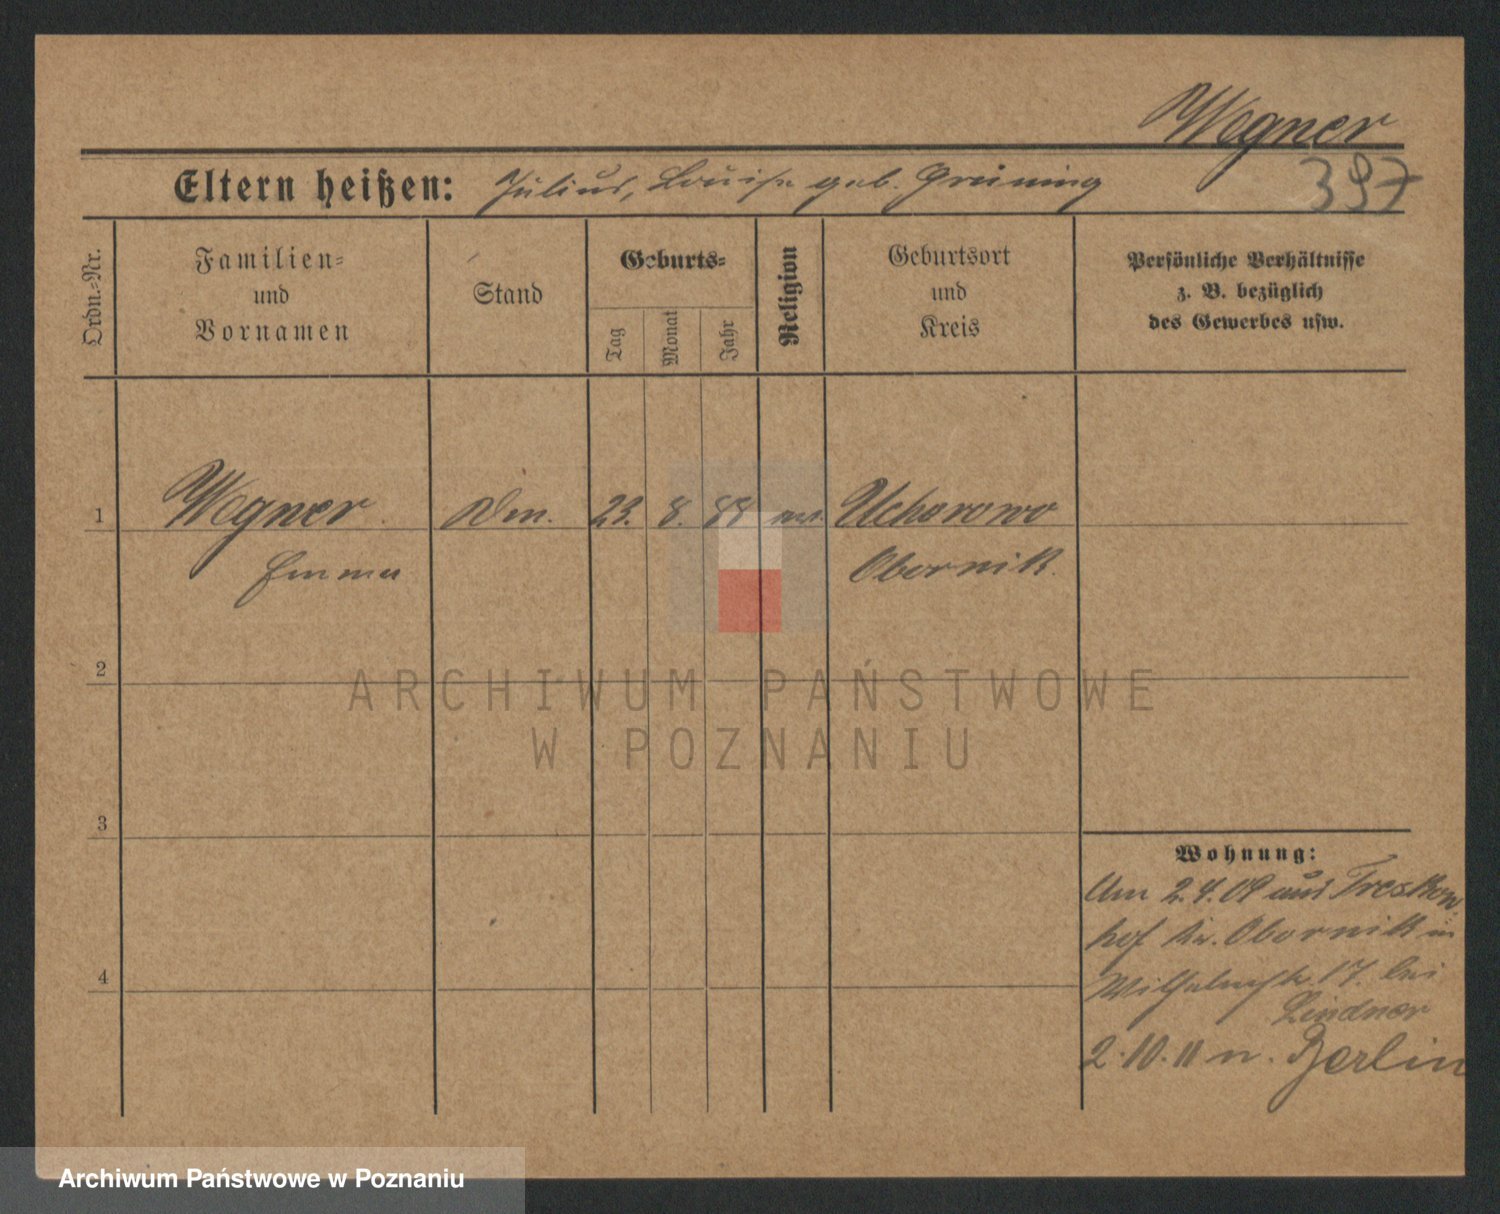 Wegner
Eltern heißen: Julius, Louise geb. Grüning
397
Ordn.-Nr.
Familien-
und
Vornamen
Stand
Geburts-
Tag
Monat
Jahr
Religion
Geburtsort
und
Kreis
Persönliche Verhältnisse
z. B. bezüglich
des Gewerbes usw.
1
Wegner
23. 8. 88
Ucharowo
Emma
Obornik
2
ARCHIWUM PAŃSTWOWE
W POZNANIU
3
Wohnung:
Am 2.4.09 aus Treskow
hof Kr. Obornik in
Wilhelmstr. 17. bei
Lindner
4
2.10.11 n. Berlin
Archiwum Państwowe w Poznaniu